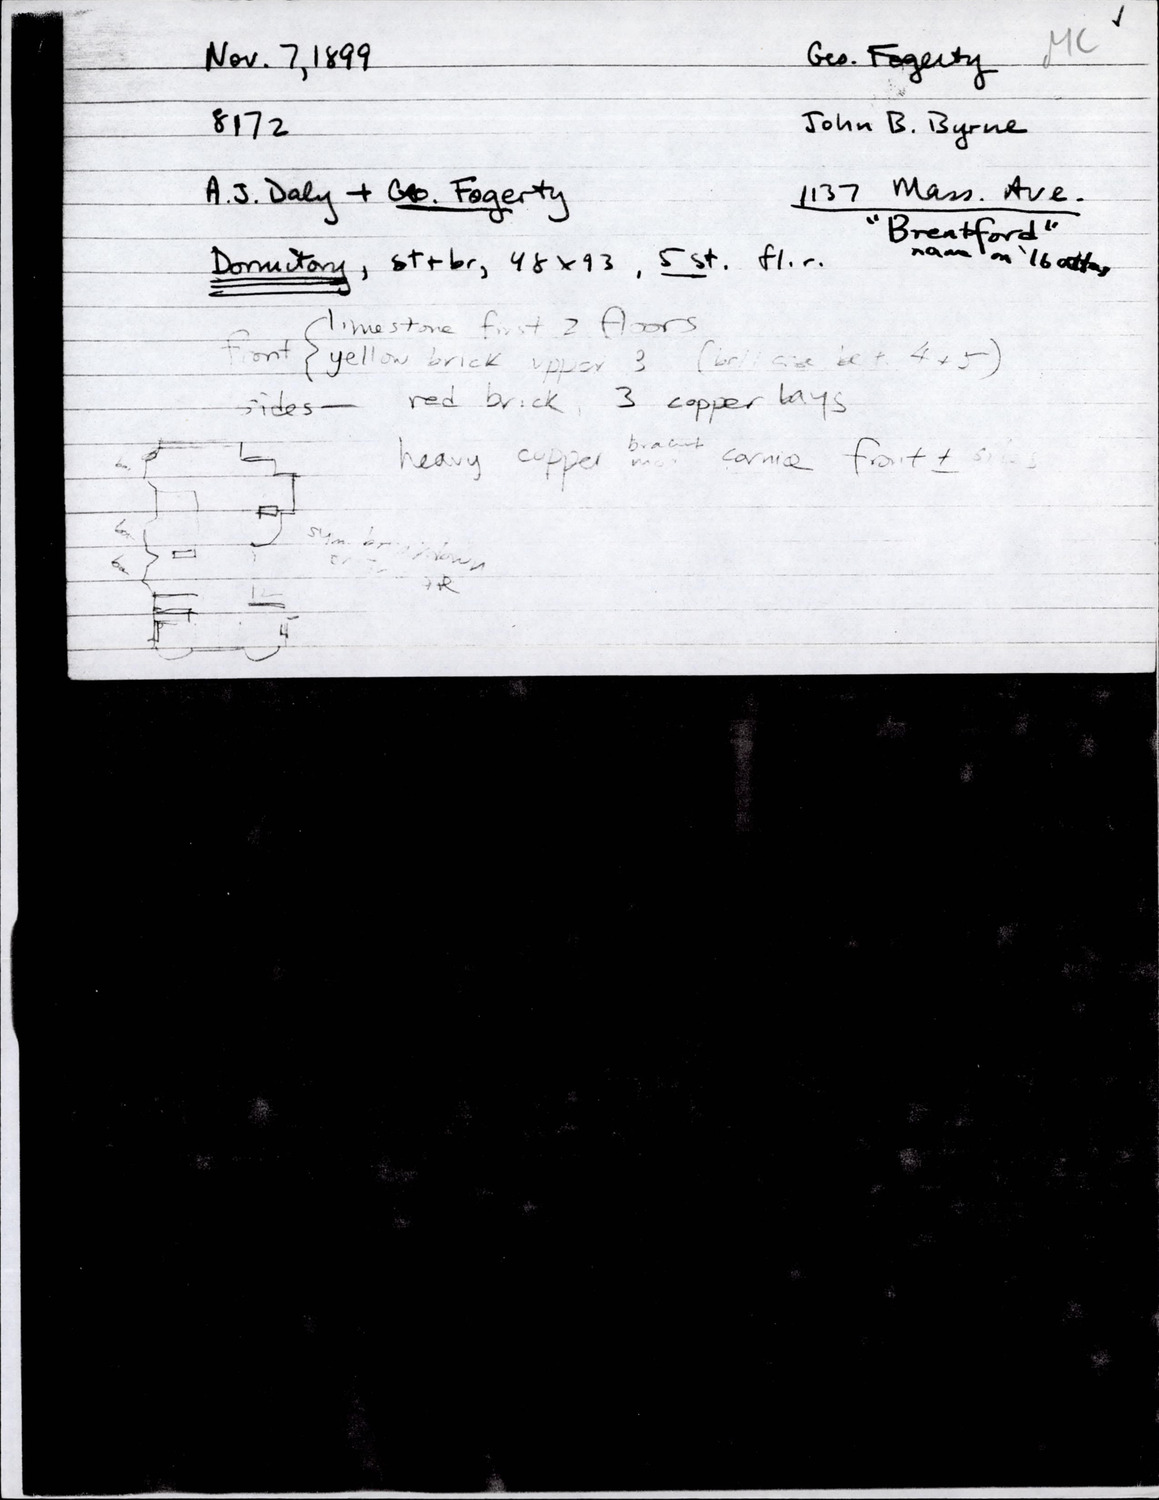 ✓
Nov. 7, 1899 Geo. Fogerty MC
8172 John B. Byrne
A.J. Daly + Geo. Fogerty 1137 Mass. Ave.
"Brentford"
name on '16 atlas
Dormitory, st+br, 48x93, 5 st. fl.r.
front { limestone first 2 floors
yellow brick upper 3 (belt 4+5)
sides— red brick, 3 copper bays
heavy copper cornice front + sides